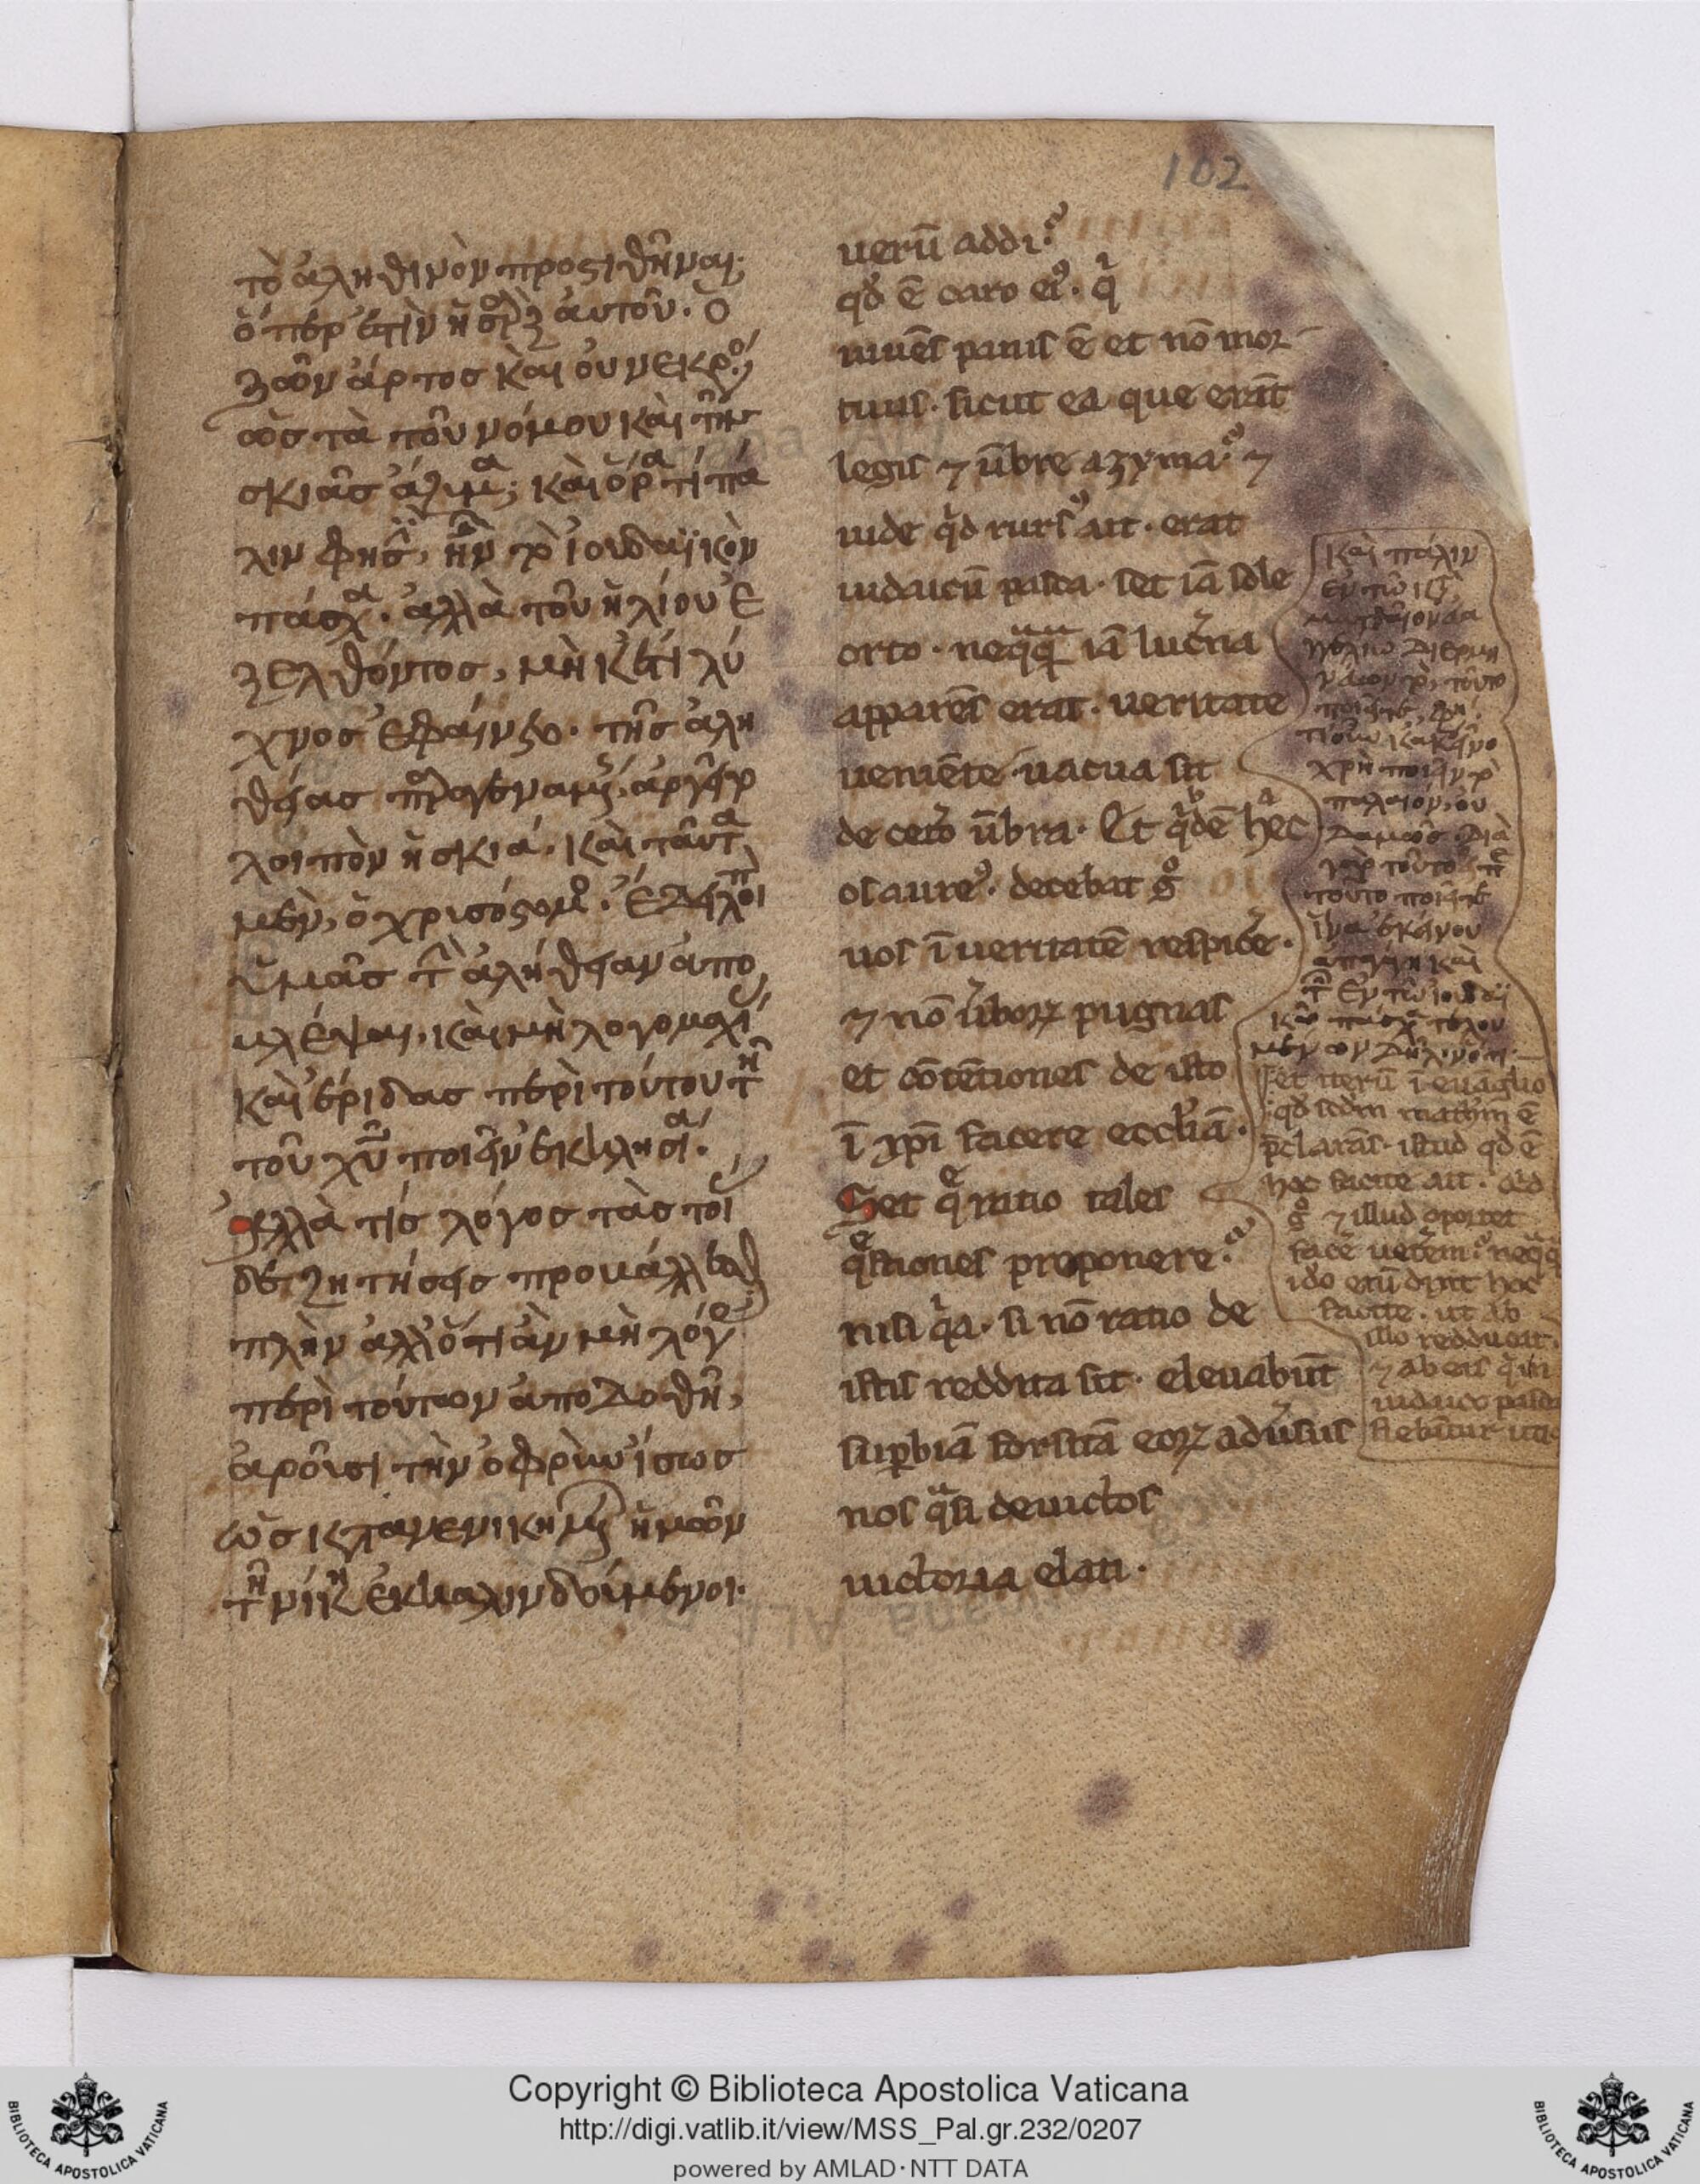 102
τὸ ἀληθινὸν προστιθῆναι;
ὅπερ ἐστὶν ἡ σὰρξ αὐτοῦ. ὁ
ζῶν ἄρτος καὶ οὐ νεκρός
ὡς τὰ τοῦ νόμου καὶ τῆς
σκιᾶς ἄζυμα; καὶ ὅρα τί πά
λιν φησὶ, ἦν τὸ ἰουδαϊκὸν
πάσχα. ἀλλὰ τοῦ ἡλίου ἐ
ξελθόντος, μὴ κέτι λύ
χνος ἐφαίνετο. τῆς ἀλη
θείας παραγεναμένης, ἀργεῖ
λοιπὸν ἡ σκιά. καὶ ταῦτα
μὲν, ὁ χρισόστομος. ἔδει λοιπὸν
ὑμᾶς τὴν ἀλήθειαν ἀπο
βλέψαι. καὶ μὴ λογομαχί
καὶ ἔριδας περὶ τούτου τὴν
τοῦ χῦ ποιεῖν ἐκκλησίαν.
ἀλλὰ τίς λόγος τὰς τοι
δὲ ζητήσεις προβάλλεσθαι
πλὴν ἀλλ' ὅτι ἂν μὴ λόγος
περὶ τούτων ἀποδοθῆ,
ἀροῦσι τὴν ὀφρὺν ἴσως
ὡς κατανενικημένων ἡμῶν
τῆ νίκη ἐκβαλινδούμενοι.
uerū addi?
qd ē caro ei9. qi
uiuēs panis ē et nō mor
tuus. sicut ea que erāt
legis ⁊ ūbre azyma? ⁊
uide qid rurs9 ait. erat
iudaicū pasca. set iā sole
orto. neqaqa iā lucna
apparēs erat. ueritate
ueniēte uacua sit
de cetō ūbra. Et qidē hec
os aure9. decebat go
uos ī ueritatē respice.
⁊ nō ūboꝝ pugnas
et cōtētiones de isto
ī xp̄i facere eccliā.
Set qe ratio tales
qestiones proponere?
nisi qia. si nō ratio de
istis reddita sit. eleuabūt
supbiā forsitā eoꝝ aduisus
nos qasi deuictos
uictoria elati.
καὶ πάλιν
ἐν τῶ
χρὴ ποιεῖν τὸ
παλαιόν, οὐ
τοῦτο ποιεῖτε
ἵνα ἐκείνου
ἀπαγάγη καὶ
et iterū ī euāglio
qd scdm mathm ē
p̄clarās. istud qd ē
hoc facite ait. qid
go ⁊ illud oportet
face uetem? neqaqa
ido enī dixit hoc
facite. ut ab
illo reducat.
⁊ ab eis q in
iudaico pasca
fiebātur
Copyright © Biblioteca Apostolica Vaticana
http://digi.vatlib.it/view/MSS_Pal.gr.232/0207
powered by AMLAD·NTT DATA
BIBLIOTECA APOSTOLICA VATICANA
BIBLIOTECA APOSTOLICA VATICANA